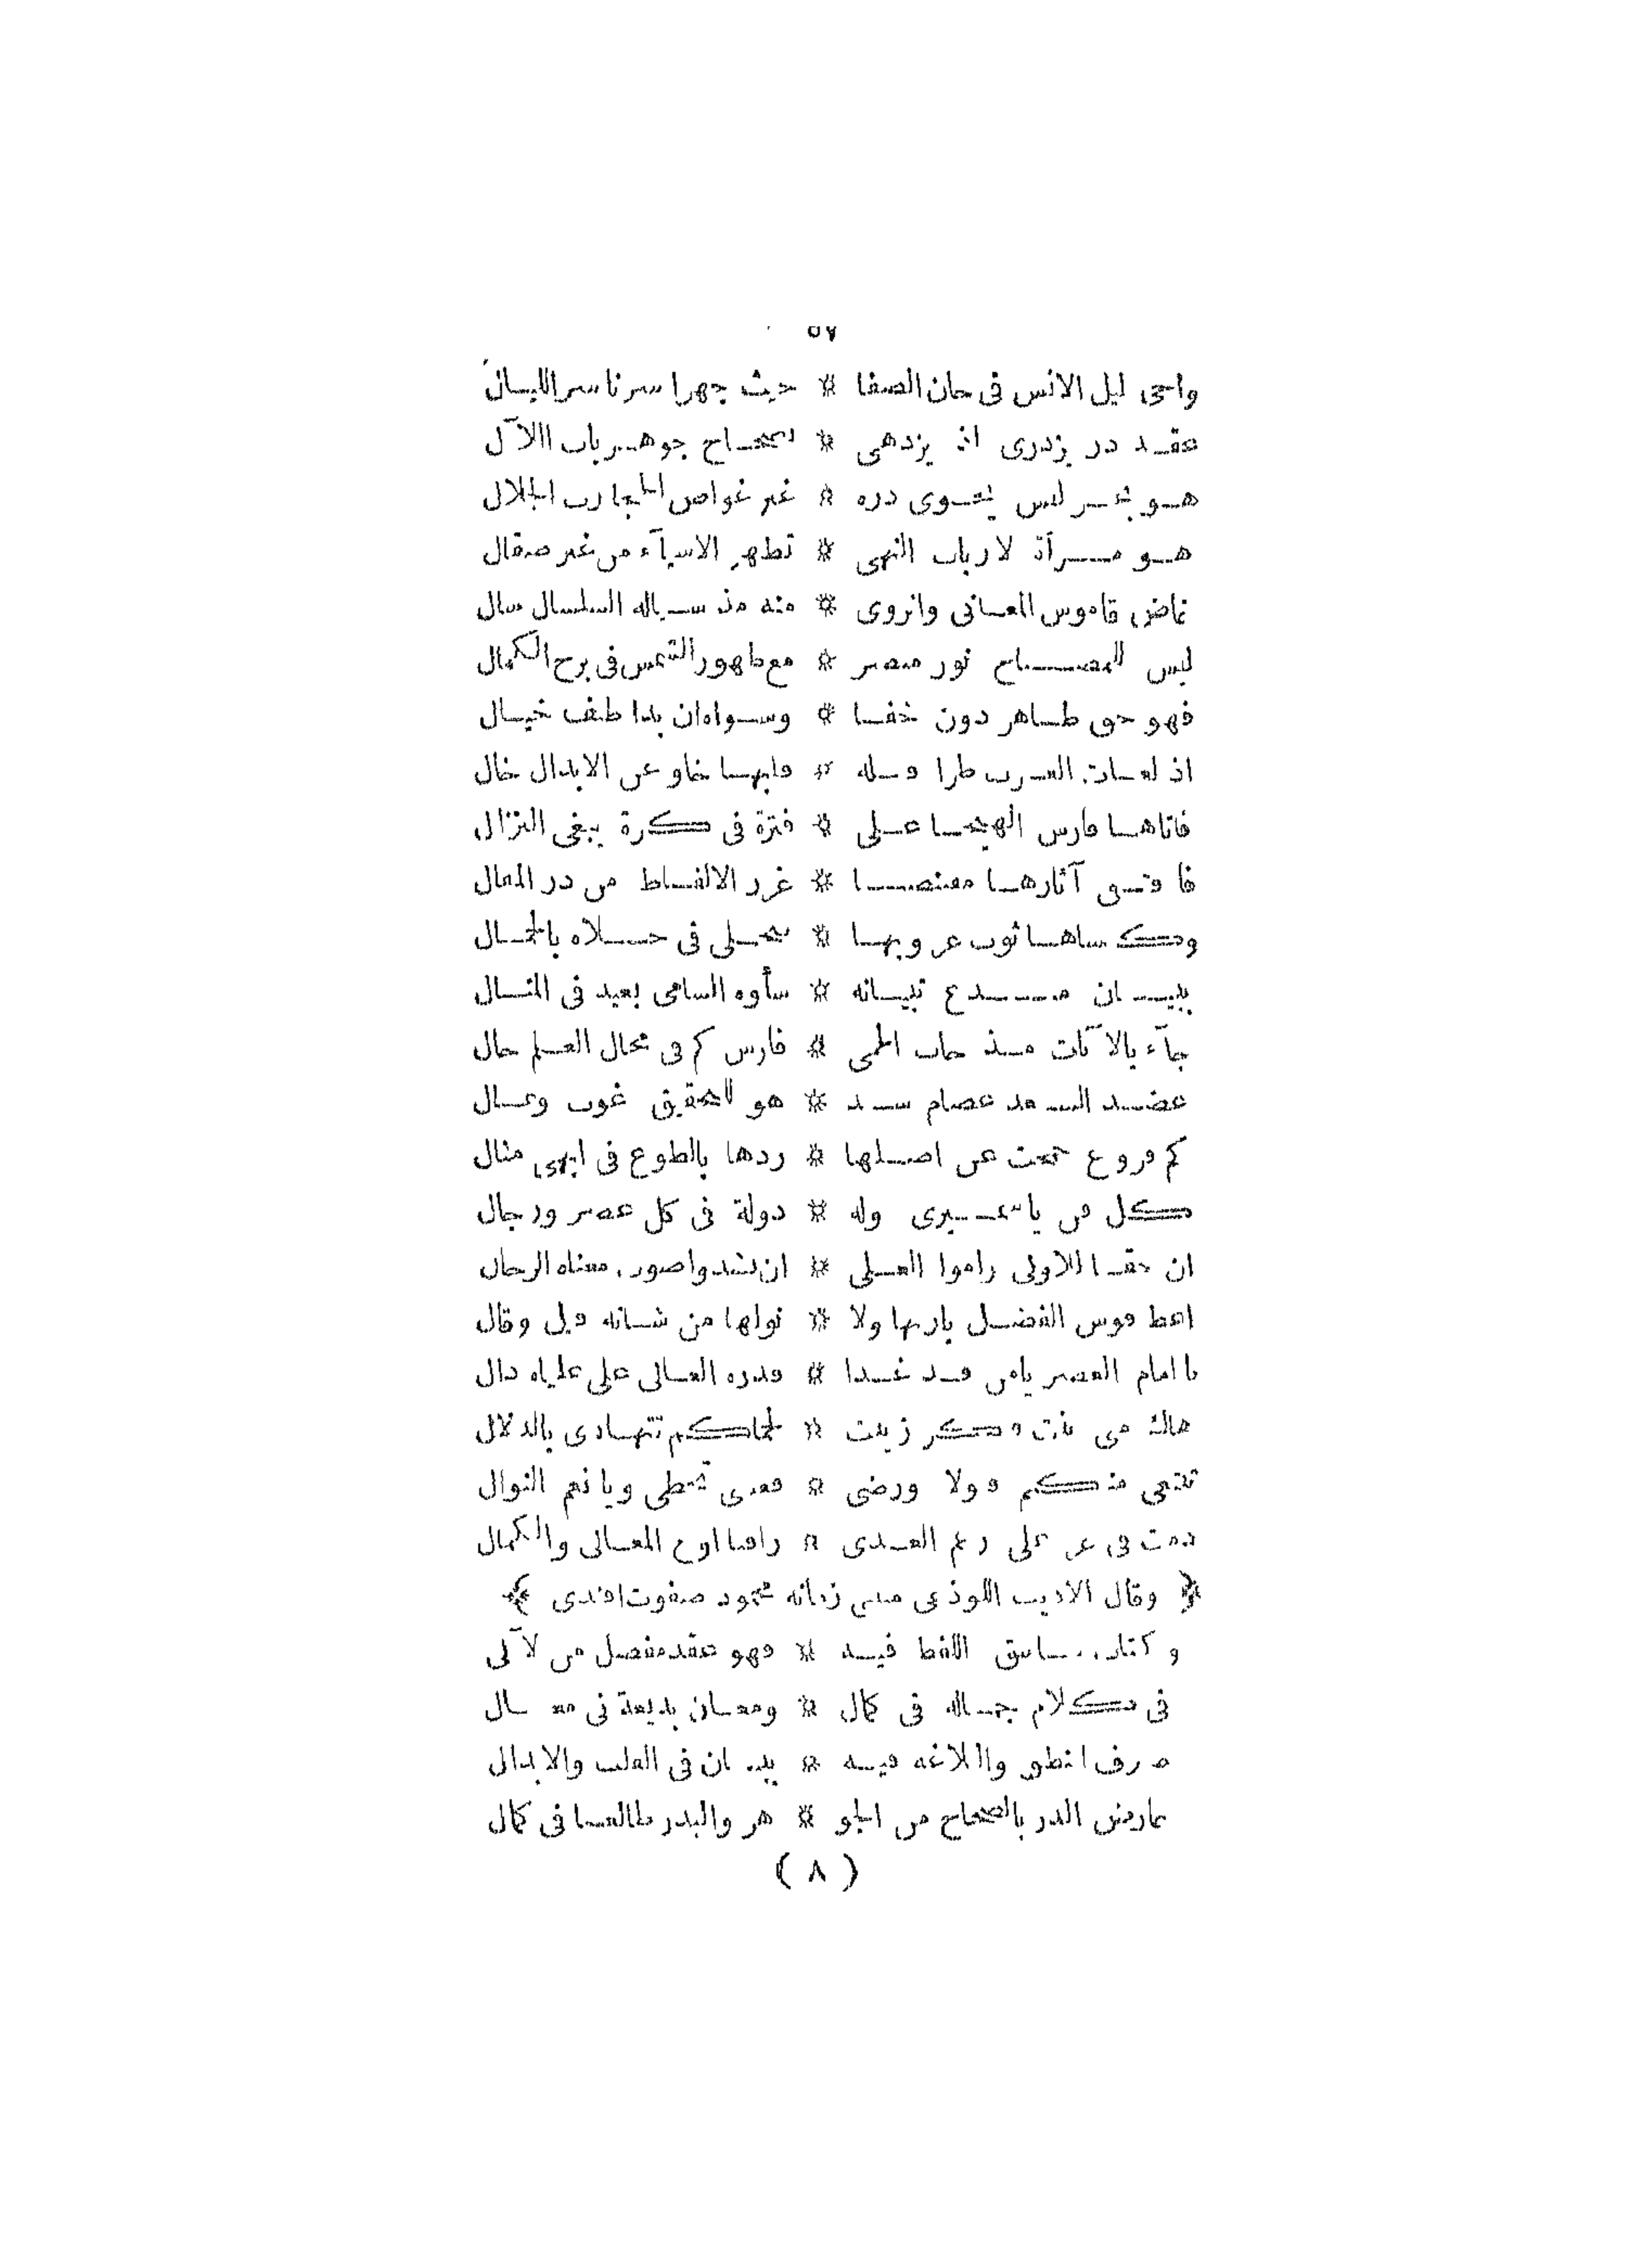 ٥٧
واحى ليل الانس فى حان الصفا * حيث جهرا سرنا سر الليال
عقد در يزدرى اذ يزدهى * بصحاح جوهر باب اللآل
هو بحر ليس يحوى دره * غير غواص الجلال
هو مرآة لارباب النهى * تظهر الاشيآء من غير صقال
غاض قاموس المعانى وانزوى * منه مذ سياله السلسال سال
ليس للمصباح نور مبصر * مع ظهور الشمس فى برج الكمال
فهو حق ظاهر دون خفا * وسواه ان بدا طيف خيال
اذ لغات العرب طرا قبله * عن الابدال خال
فاتاها فارس الهيجا على * فترة فى كرة يبغى النزال
فاقتنى آثارها مقتنصا * غرر الالفاظ من در المقال
وكساها ثوب عروبها * تنجلى فى حلاه بالجمال
ببيان مبدع تبيانه * شأوه السامى بعيد فى المنال
جآء بالآيات مذ جاب الحمى * فارس كم فى مجال العلم جال
عضد السعد عصام سيد * هو للتحقيق غوث وثمال
كم فروع جمحت عن اصلها * ردها بالطوع فى ابهى مثال
كل فن وله * دولة فى كل عصر ورجال
ان حقا للاولى راموا العلى * ان يشدوا صوب مغناه الرحال
اعط قوس الفضل باريها ولا * تولها من شانه قيل وقال
يا امام العصر يا من قد غدا * قدره العالى على علياه دال
هاك من بنت فكر زينت * لحماكم تتهادى بالدلال
تبتغى منكم قبولا ورضى * فعسى تحظى ويا نعم النوال
دمت فى عز على رغم العدى * راقيا اوج المعالى والكمال
﴿ وقال الاديب اللوذعى زمانه محمود صفوت افندى ﴾
وكتاب اللفظ فيه * فهو عقد مفصل من لآلى
فى كلام جماله فى كمال * ومعان بديعة فى
والبلاغة فيه * ببيان فى القلب والابدال
عارض الدر بالصحاح من الجو * هر والبدر طالعا فى كمال
( ٨ )